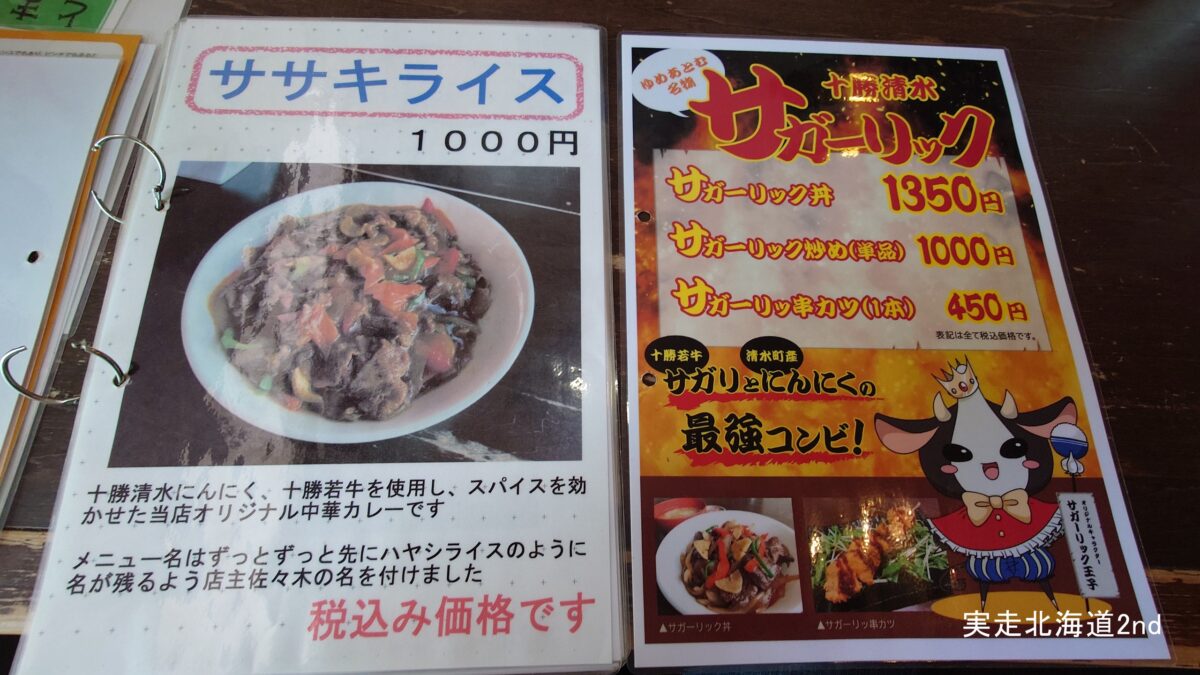 ササキライス
1000円
十勝清水にんにく、十勝若牛を使用し、スパイスを効
かせた当店オリジナル中華カレーです
メニュー名はずっとずっと先にハヤシライスのように
名が残るよう店主佐々木の名を付けました
税込み価格です
ゆめあとむ
名物
十勝清水
サガーリック
サガーリック丼 1350円
サガーリック炒め(単品) 1000円
サガーリッ串カツ(1本) 450円
表記は全て税込価格です。
十勝若牛 清水町産
サガリとにんにくの
最強コンビ!
オリジナルキャラクター
サガーリック王子
▲サガーリック丼
▲サガーリッ串カツ
実走北海道2nd